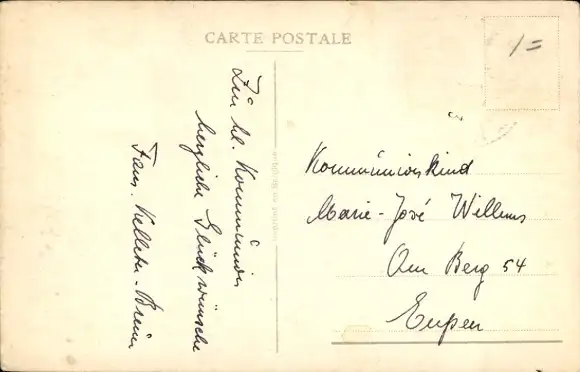 CARTE POSTALE
1=
Zur hl. Kommunion
herzliche Glückwünsche
Fam.
Kommunionkind
Marie-José Willems
Am Berg 54
Eupen